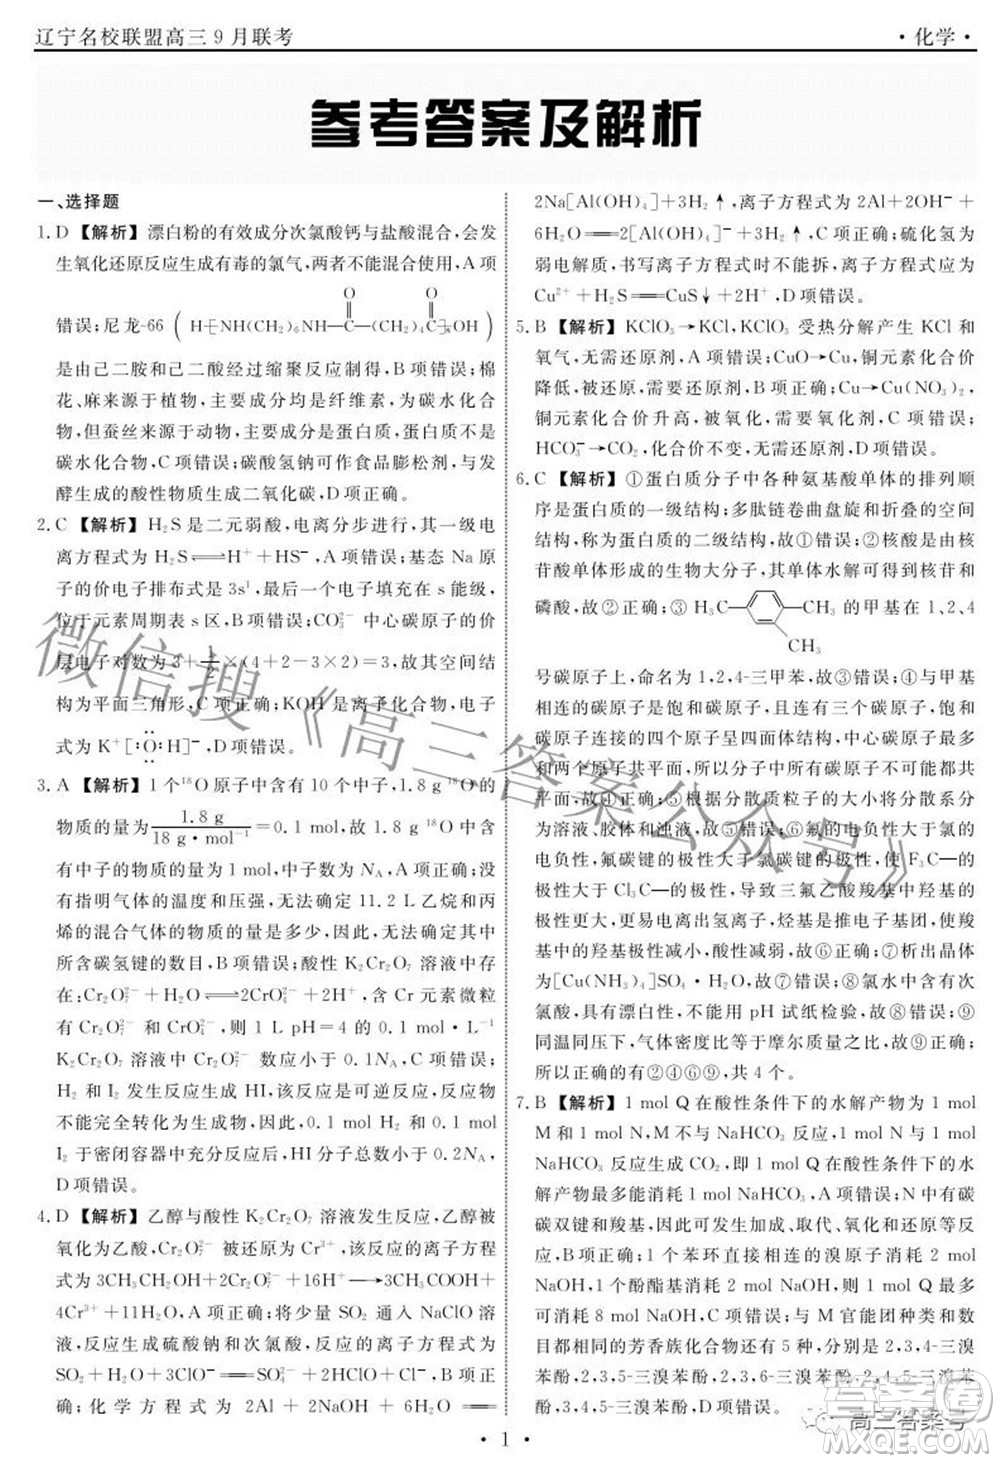 辽宁名校联盟高三9月联考
·化学·
参考答案及解析
一、选择题
1.D【解析】漂白粉的有效成分次氯酸钙与盐酸混合,会发
生氧化还原反应生成有毒的氯气,两者不能混合使用,A项
O O
错误;尼龙-66(H[NH(CH₂)₆NH—C(CH₂)₄C]ₓOH)
是由己二胺和己二酸通过缩聚反应制得,B项错误;棉
花、麻来源于植物,主要成分都是纤维素,为碳水化合
物,但蚕丝来源于动物,主要成分是蛋白质,蛋白质不是
碳水化合物,C项错误;碳酸氢钠可作食品膨松剂,与发
酵生成的酸性物质生成二氧化碳,D项正确。
2.C【解析】H₂S是二元弱酸,电离分步进行,其一级电
离方程式为H₂S⇌H⁺+HS⁻,A项错误;基态Na原
子的价电子排布式是3s¹,最后一个电子填充在s能级,
位于元素周期表s区,B项错误;CO₃²⁻中心碳原子的价
层电子对数为3+1/2×(4+2-3×2)=3,故其空间结
构为平面三角形,C项正确;KOH是离子化合物,电子
式为K⁺[:O:H]⁻,D项错误。
3.A【解析】1个¹⁸O原子中含有10个中子,1.8 g¹⁸O的
物质的量为1.8 g/18 g·mol⁻¹=0.1 mol,故1.8 g ¹⁸O中含
有中子的物质的量为1 mol,中子数为Nᴀ,A项正确;未
指明气体的温度和压强,无法计算11.2 L乙烷和丙
烯的混合气体的物质的量是多少,因此,无法确定其含
有碳氢键的数目,B项错误;酸性K₂Cr₂O₇溶液中存在:
Cr₂O₇²⁻+H₂O⇌2CrO₄²⁻+2H⁺,含Cr元素微粒
有Cr₂O₇²⁻和CrO₄²⁻,则1 L pH=4的0.1 mol·L⁻¹
K₂Cr₂O₇溶液中Cr₂O₇²⁻数应小于0.1Nᴀ,C项错误;
H₂和I₂发生反应生成HI,该反应是可逆反应,反应物不
能完全转化为生成物,因此,0.1 mol H₂和0.1 mol
I₂于密闭容器中充分反应后,HI分子总数小于0.2Nᴀ,
D项错误。
4.D【解析】乙醇与酸性K₂Cr₂O₇溶液发生反应,乙醇被
氧化为乙酸,Cr₂O₇²⁻被还原为Cr³⁺,该反应的离子方程
式为3CH₃CH₂OH+2Cr₂O₇²⁻+16H⁺→3CH₃COOH+
4Cr³⁺+11H₂O,A项正确;将少量SO₂通入NaClO溶
液,反应生成硫酸钠和次氯酸,反应的离子方程式为
SO₂+H₂O+3ClO⁻═SO₄²⁻+Cl⁻+2HClO,B项正
确;化学方程式为2Al+2NaOH+6H₂O═
2Na[Al(OH)₄]+3H₂↑,离子方程式为2Al+2OH⁻+
6H₂O═2[Al(OH)₄]⁻+3H₂↑,C项正确;硫化氢为
弱电解质,书写离子方程式时不能拆,离子方程式应为
Cu²⁺+H₂S═CuS↓+2H⁺,D项错误。
5.B【解析】KClO₃→KCl,KClO₃受热分解产生KCl和
氧气,无需还原剂,A项错误;CuO→Cu,铜元素化合价
降低,被还原,需加还原剂,B项正确;Cu→Cu(NO₃)₂,
铜元素化合价升高,被氧化,需要氧化剂,C项错误;
HCO₃⁻→CO₂,化合价不变,无需还原剂,D项错误。
6.C【解析】①蛋白质分子中各种氨基酸单体的排列顺
序是蛋白质的一级结构;多肽链卷曲盘旋和折叠的空间
结构,称为蛋白质的二级结构,故①错误;②核酸是由核
苷酸单体形成的生物大分子,其单体水解可得到核苷和
磷酸,故②正确;③H₃C—CH₃的甲基在1、2、4
CH₃
号碳原子上,命名为1,2,4-三甲苯,故③错误;④与甲基
相连的碳原子是饱和碳原子,饱和碳原子与相连的4个
碳原子中最多3个原子呈四面体结构,不可能所有碳原
子都共平面,故④正确;⑤根据分散质粒子的大小将分散系分
为溶液、胶体和浊液,故⑤错误;⑥氟的电负性大于氯的
电负性,氟碳键的极性大于氯碳键的极性,使F₃C—的
极性大于Cl₃C—的极性,导致三氟乙酸羧基中羟基的
极性更大,更易电离出氢离子,烃基是推电子基团,使羧
基中的羟基极性减小,酸性减弱,故⑥正确;⑦析出晶体
[Cu(NH₃)₄]SO₄·H₂O,故⑦错误;⑧氯水中含有次
氯酸,具有漂白性,不能用pH试纸检验,故⑧错误;⑨
同温同压下,气体密度比等于摩尔质量之比,故⑨正确。
所以正确的有②④⑥⑨,共4个。
7.B【解析】1 mol Q在酸性条件下的水解产物为1 mol
M和1 mol N,M不与NaHCO₃反应,1 mol N与1 mol
NaHCO₃反应生成CO₂,即1 mol Q在酸性条件下的水
解产物最多能消耗1 mol NaHCO₃,A项错误;N含有
碳碳双键和羧基,因此可发生加成、取代、氧化和还原反
应,B项正确;1个苯环直接相连的溴原子消耗2 mol
NaOH,1个酚酯基消耗2 mol NaOH,则1 mol Q最多
可消耗8 mol NaOH,C项错误;与M官能团种类和数
目都相同的芳香族化合物还有5种,分别是2,3,4-三溴
苯酚,2,3,5-三溴苯酚,2,3,6-三溴苯酚,2,4,5-三溴
苯酚,3,4,5-三溴苯酚,D项错误。
·1·
微信搜《高三答案公众号》
高三答案号
答案圈
MXQE.COM